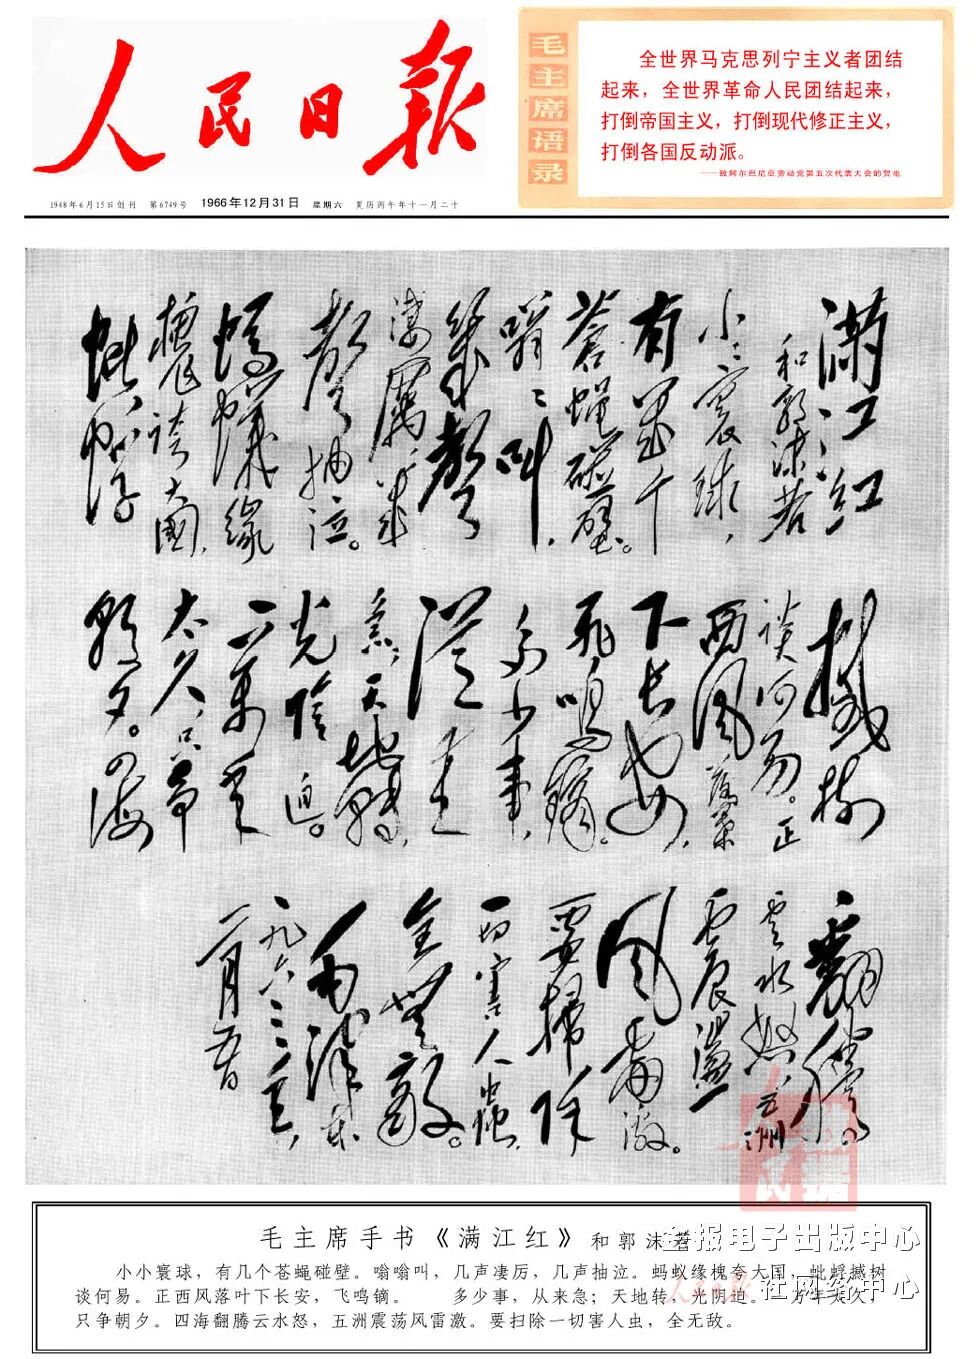 人民日报
毛主席语录
全世界马克思列宁主义者团结
起来，全世界革命人民团结起来，
打倒帝国主义，打倒现代修正主义，
打倒各国反动派。
——致阿尔巴尼亚劳动党第五次代表大会的贺电
1948年6月15日创刊 第6749号 1966年12月31日 星期六 夏历丙午年十一月二十
满江红
和郭沫若
小小寰球，
有幾个
蒼蠅碰壁。
嗡嗡叫，
幾聲
淒厲，幾
聲抽泣。
螞蟻緣
槐誇大國，
蚍蜉
撼樹
談何易。正
西風落葉
下长安，
飛鳴鏑。
多少事，
從来
急；天地轉，
光陰迫。
一萬年
太久，只争
朝夕。四海
翻騰
雲水怒，五洲
震盪
風雷激。
要掃除
一切害人蟲，
全無敵。
毛澤東
一九六三年
二月五日
毛主席手书《满江红》和郭沫若
小小寰球，有几个苍蝇碰壁。嗡嗡叫，几声凄厉，几声抽泣。蚂蚁缘槐夸大国，蚍蜉撼树
谈何易。正西风落叶下长安，飞鸣镝。 多少事，从来急；天地转，光阴迫。一万年太久，
只争朝夕。四海翻腾云水怒，五洲震荡风雷激。要扫除一切害人虫，全无敌。
金报电子出版中心
人民日报社网络中心